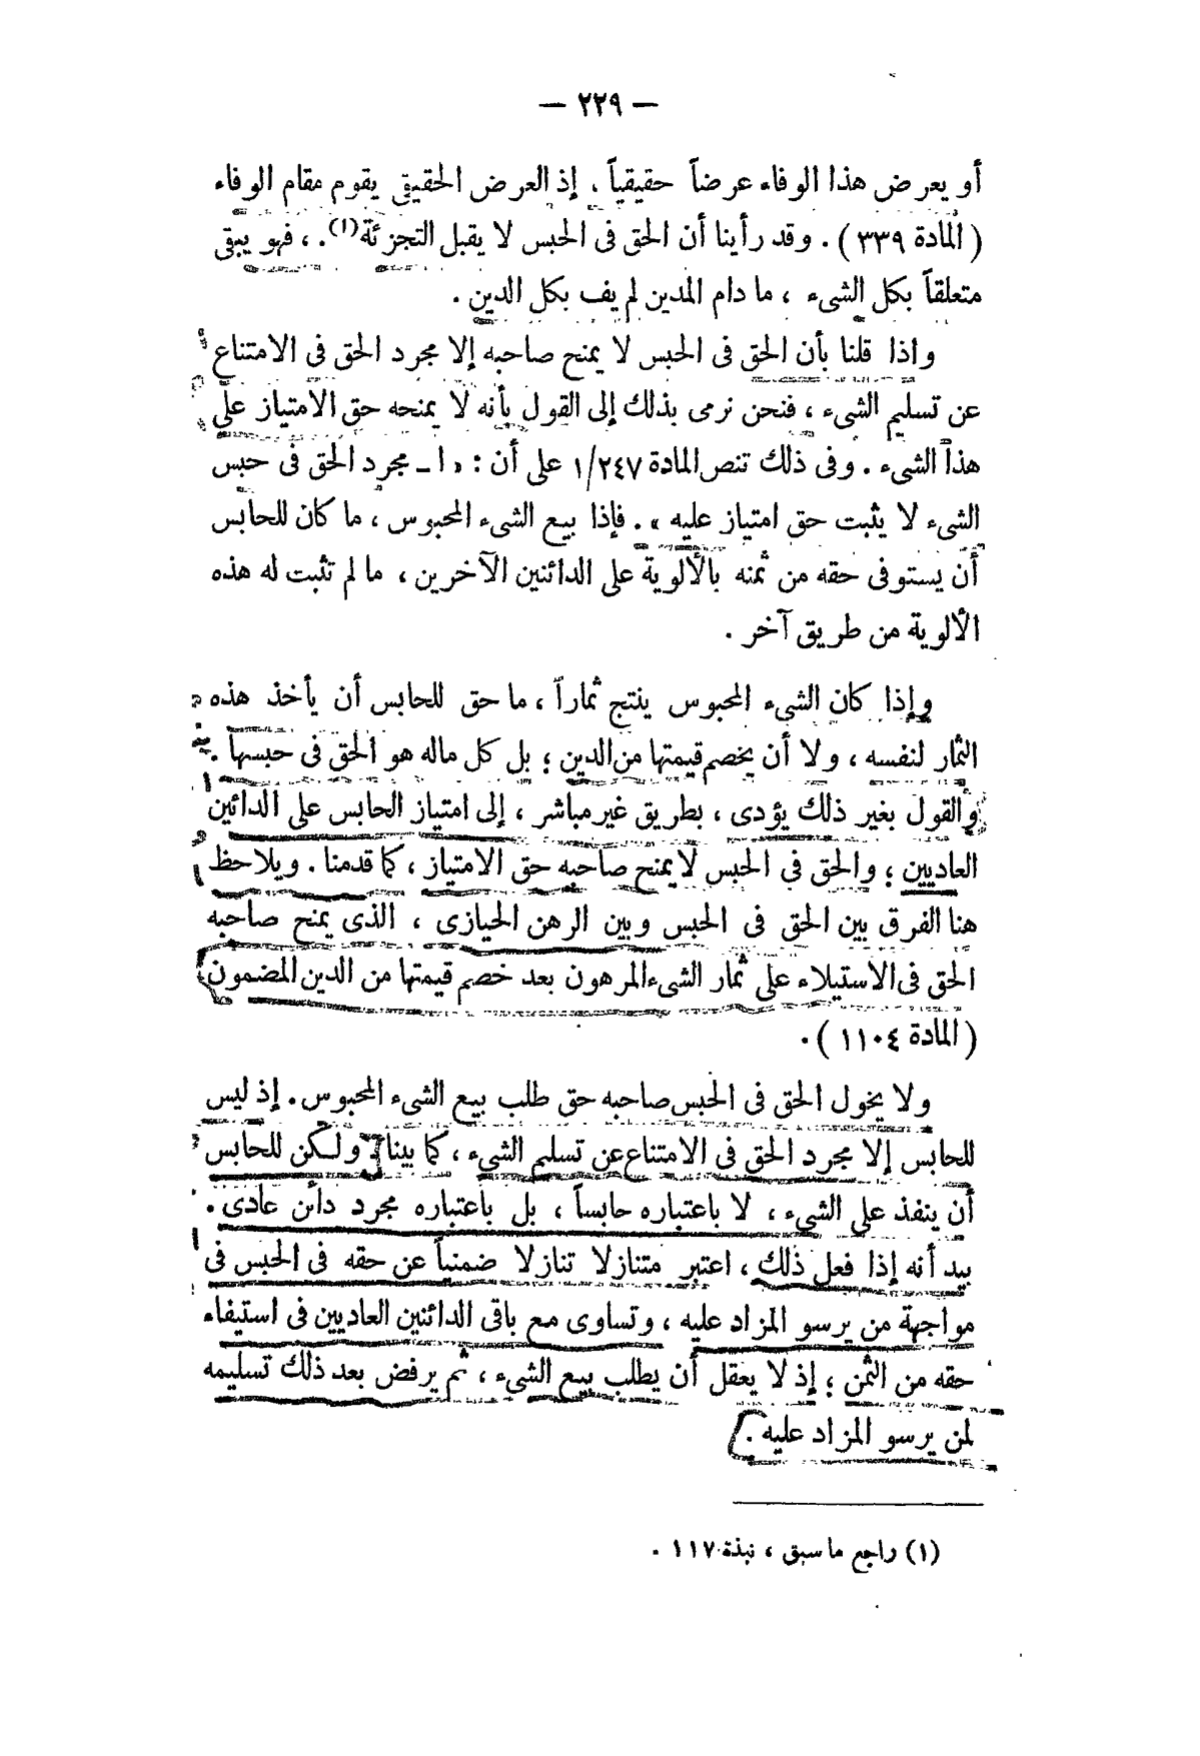 — ٢٢٩ —
أو يعرض هذا الوفاء عرضاً حقيقياً ، إذ العرض الحقيقى يقوم مقام الوفاء
( المادة ٣٣٩ ) . وقد رأينا أن الحق فى الحبس لا يقبل التجزئة(١) . ، فهو يبقى
متعلقاً بكل الشىء ، ما دام المدين لم يف بكل الدين .
واذا قلنا بأن الحق فى الحبس لا يمنح صاحبه إلا مجرد الحق فى الامتناع
عن تسليم الشىء ، فنحن نرمى بذلك إلى القول بأنه لا يمنحه حق الامتياز على
هذا الشىء . وفى ذلك تنص المادة ٢٤٧/١ على أن : « ١ – مجرد الحق فى حبس
الشىء لا يثبت حق امتياز عليه » . فإذا بيع الشىء المحبوس ، ما كان للحابس
أن يستوفى حقه من ثمنه بالألوية على الدائنين الآخرين ، ما لم تثبت له هذه
الألوية من طريق آخر .
وإذا كان الشىء المحبوس ينتج ثماراً ، ما حق للحابس أن يأخذ هذه
الثمار لنفسه ، ولا أن يخصم قيمتها من الدين ؛ بل كل ماله هو الحق فى حبسها .
والقول بغير ذلك يؤدى ، بطريق غير مباشر ، إلى امتياز الحابس على الدائنين
العاديين ؛ والحق فى الحبس لا يمنح صاحبه حق الامتياز ، كما قدمنا . ويلاحظ
هنا الفرق بين الحق فى الحبس وبين الرهن الحيازى ، الذى يمنح صاحبه
الحق فى الاستيلاء على ثمار الشىء المرهون بعد خصم قيمتها من الدين المضمون
( المادة ١١٠٤ ) .
ولا يخول الحق فى الحبس صاحبه حق طلب بيع الشىء المحبوس . إذ ليس
للحابس إلا مجرد الحق فى الامتناع عن تسليم الشىء ، كما بينا . ولكن للحابس
أن ينفذ على الشىء ، لا باعتباره حابساً ، بل باعتباره مجرد دائن عادى .
بيد أنه إذا فعل ذلك ، اعتبر متنازلا تنازلا ضمنياً عن حقه فى الحبس فى
مواجهة من يرسو المزاد عليه ، وتساوى مع باقى الدائنين العاديين فى استيفاء
حقه من الثمن ؛ إذ لا يعقل أن يطلب بيع الشىء ، ثم يرفض بعد ذلك تسليمه
لمن يرسو المزاد عليه .
(١) راجع ما سبق ، نبذة ١١٧ .